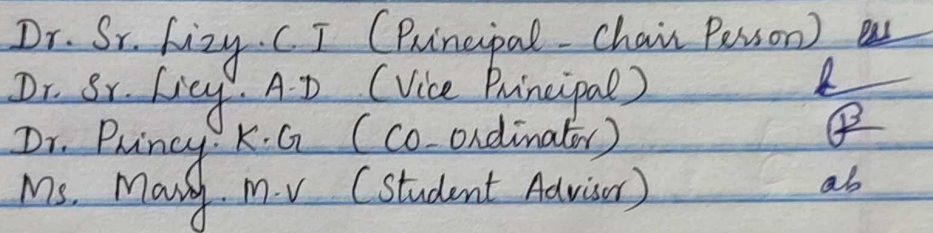 Dr. Sr. Lizy. C I (Principal - Chair Person)
Dr. Sr. Licy. A.D (Vice Principal)
Dr. Princy. K.G (Co-ordinator)
Ms. Mary. M.V (Student Advisor) ab